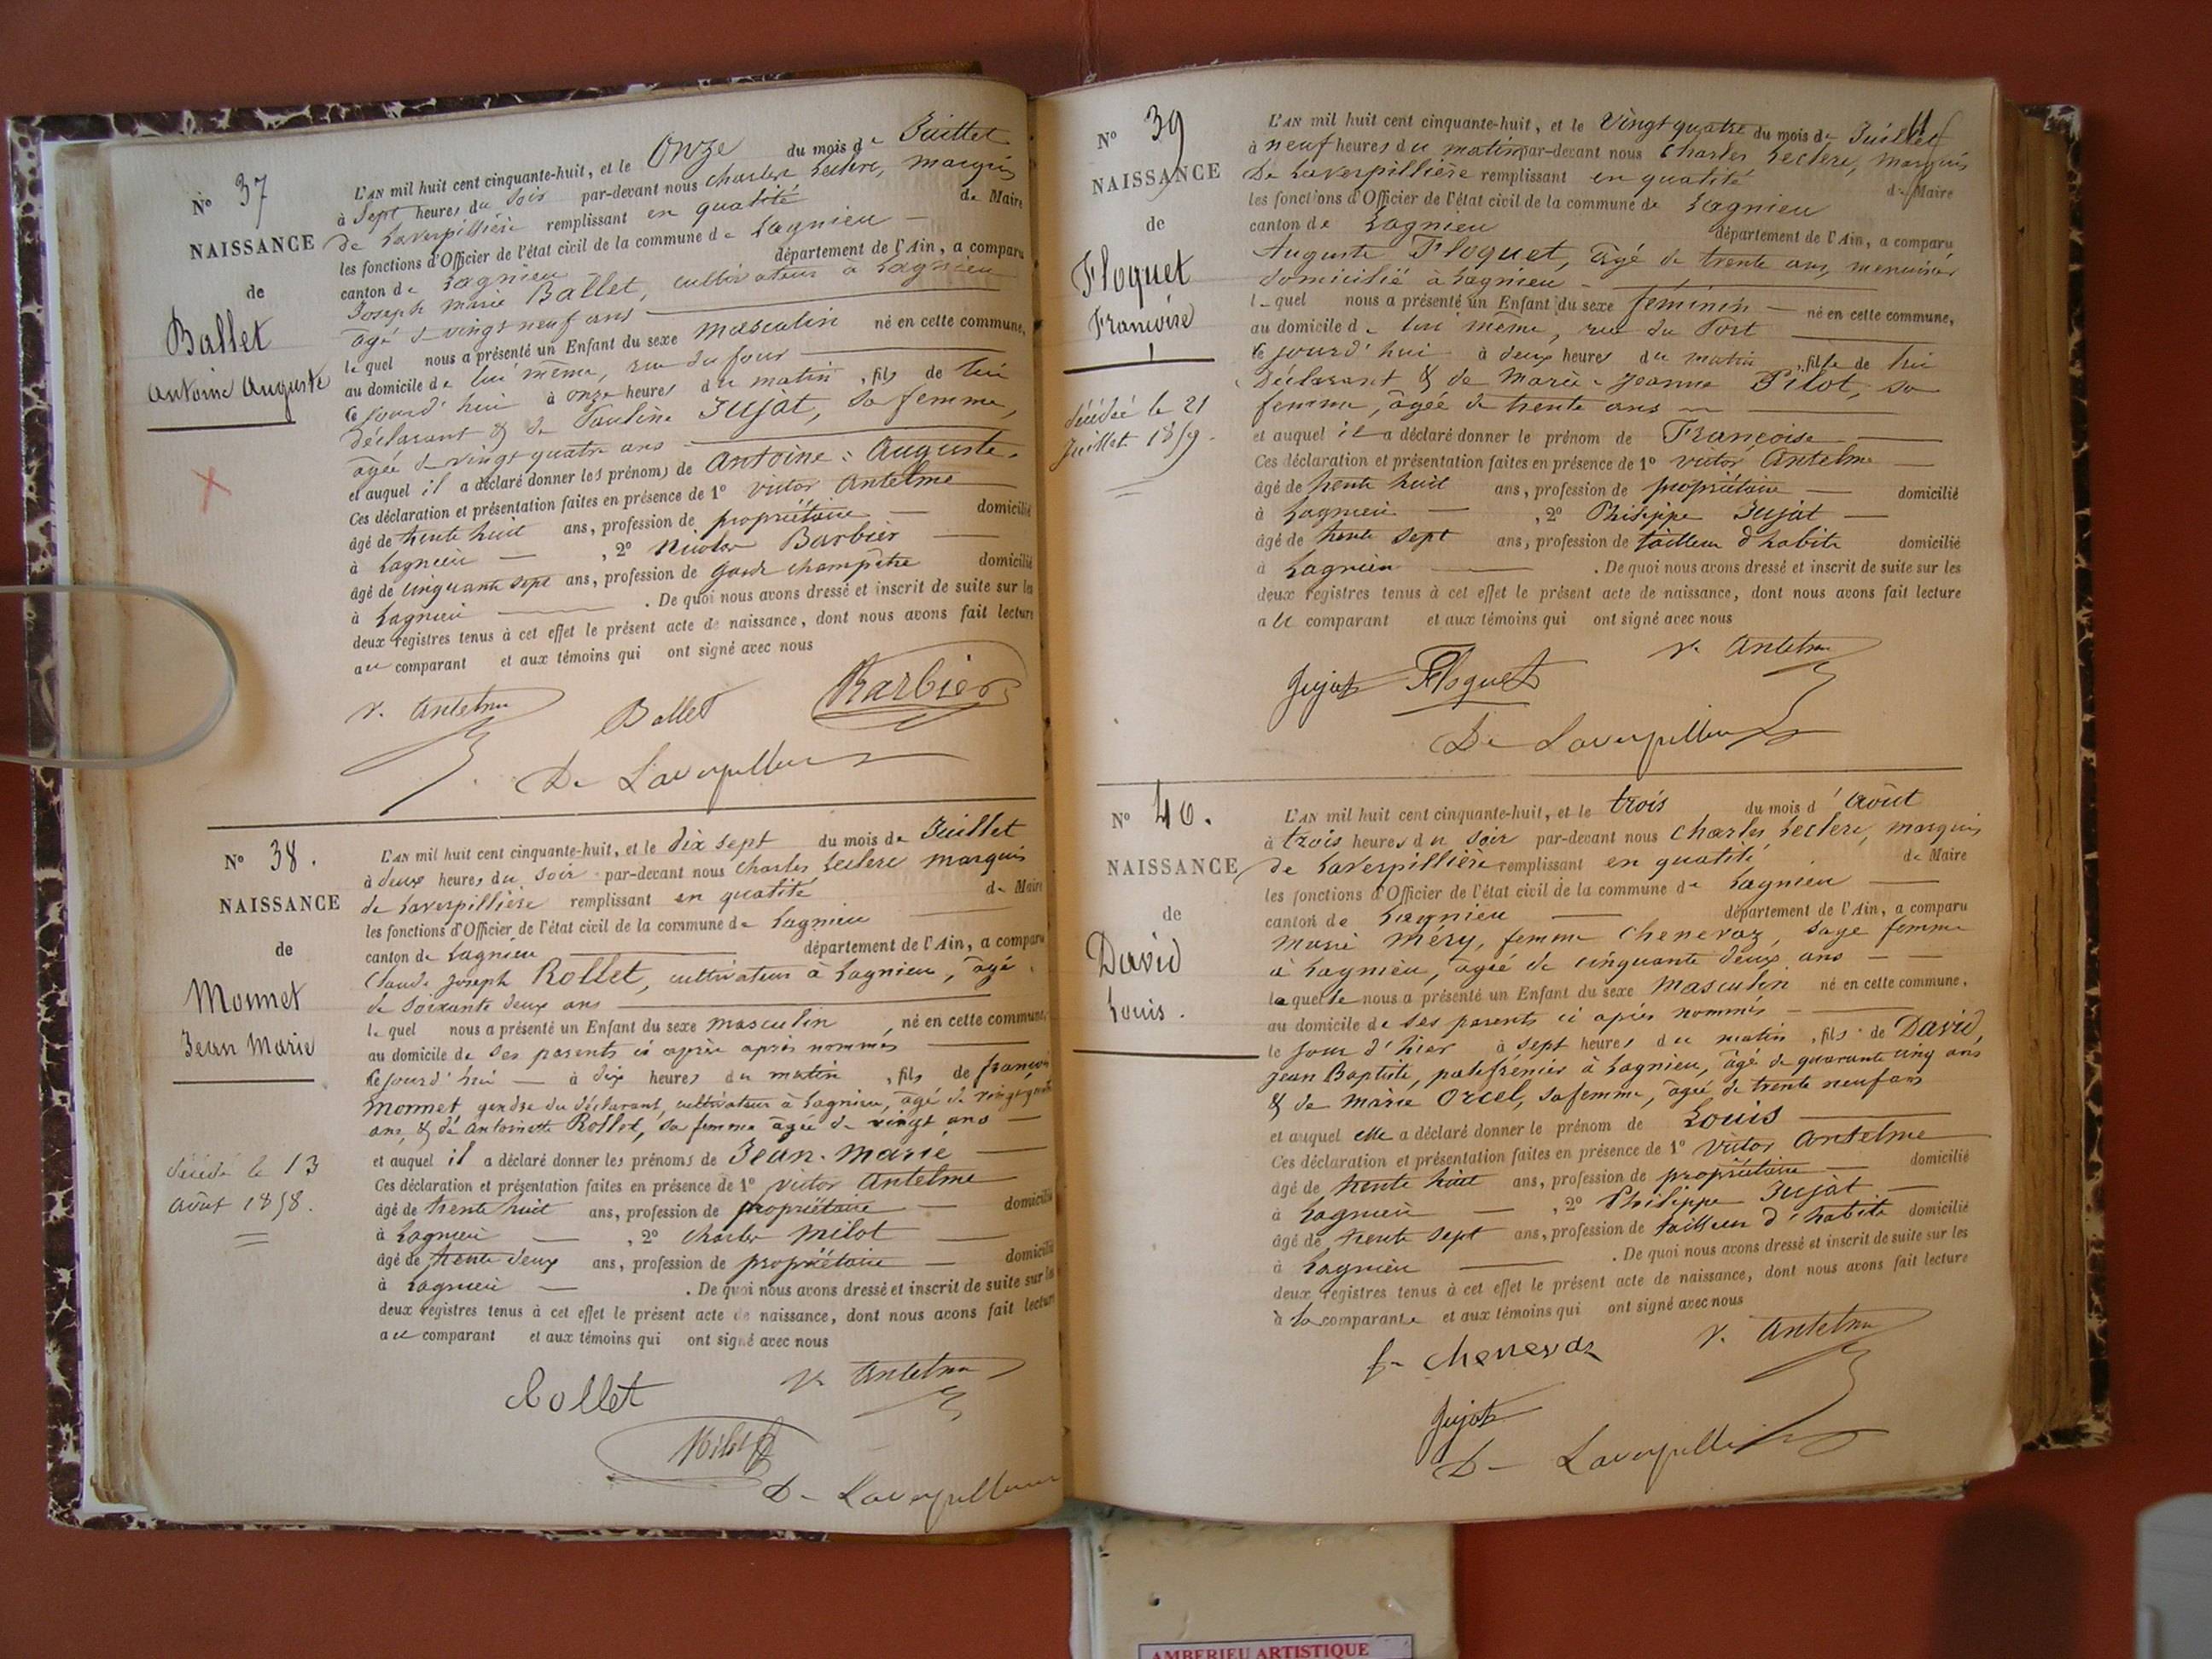 N° 37
NAISSANCE
de
Ballet
Antoine Auguste
L'AN mil huit cent cinquante-huit, et le Onze du mois de Juillet
à Sept heures du soir par-devant nous Charles Leclerc, marquis
de Laverpillière remplissant en qualité de Maire
les fonctions d'Officier de l'état civil de la commune de Lagnieu
canton de Lagnieu département de l'Ain, a comparu
Joseph Marie Ballet, cultivateur à Lagnieu
âgé de vingt neuf ans
lequel nous a présenté un Enfant du sexe masculin né en cette commune,
au domicile de lui même, rue du four
ce jourd'hui à onze heures du matin, fils de lui
déclarant & de Pauline Jujat, sa femme,
âgée de vingt quatre ans
et auquel il a déclaré donner les prénoms de Antoine = Auguste.
Ces déclaration et présentation faites en présence de 1° Victor Antelme
âgé de trente huit ans, profession de propriétaire domicilié
à Lagnieu, 2° Nicolas Barbier
âgé de cinquante sept ans, profession de garde champêtre domicilié
à Lagnieu. De quoi nous avons dressé et inscrit de suite sur les
deux registres tenus à cet effet le présent acte de naissance, dont nous avons fait lecture
au comparant et aux témoins qui ont signé avec nous
V. Antelme Ballet Barbier
De Laverpilliere
N° 38.
NAISSANCE
de
Monnet
Jean Marie
décédé le 13
Août 1858.
L'AN mil huit cent cinquante-huit, et le dix sept du mois de Juillet
à deux heures du soir par-devant nous Charles Leclerc marquis
de Laverpillière remplissant en qualité de Maire
les fonctions d'Officier de l'état civil de la commune de Lagnieu
canton de Lagnieu département de l'Ain, a comparu
Claude Joseph Rollet, cultivateur à Lagnieu, âgé
de soixante deux ans
lequel nous a présenté un Enfant du sexe masculin, né en cette commune,
au domicile de ses parents ci après après nommés
ce jourd'hui à dix heures du matin, fils de françois
Monnet gendre du déclarant, cultivateur à Lagnieu, âgé de
ans, & de Antoinette Rollet, sa femme âgée de vingt ans
et auquel il a déclaré donner les prénoms de Jean-Marie
Ces déclaration et présentation faites en présence de 1° Victor Antelme
âgé de trente huit ans, profession de propriétaire domicilié
à Lagnieu, 2° Charles Milot
âgé de trente deux ans, profession de propriétaire domicilié
à Lagnieu. De quoi nous avons dressé et inscrit de suite sur les
deux registres tenus à cet effet le présent acte de naissance, dont nous avons fait lecture
au comparant et aux témoins qui ont signé avec nous
Rollet V. Antelme
Milot
De Laverpilliere
N° 39
NAISSANCE
de
Floquet
Francoise
1
décédée le 21
Juillet 1859.
L'AN mil huit cent cinquante-huit, et le Vingt quatre du mois de Juillet
à neuf heures du matin par-devant nous Charles Leclerc, marquis
de Laverpillière remplissant en qualité de Maire
les fonctions d'Officier de l'état civil de la commune de Lagnieu
canton de Lagnieu département de l'Ain, a comparu
Auguste Floquet, âgé de trente ans, menuisier
domicilié à Lagnieu
lequel nous a présenté un Enfant du sexe féminin né en cette commune,
au domicile de lui même, rue du Port
ce jourd'hui à deux heures du matin, fille de lui
déclarant & de Marie-Jeanne Pilot, sa
femme, âgée de trente ans
et auquel il a déclaré donner le prénom de Françoise
Ces déclaration et présentation faites en présence de 1° Victor Antelme
âgé de trente huit ans, profession de propriétaire domicilié
à Lagnieu, 2° Philippe Jujat
âgé de trente sept ans, profession de tailleur d'habits domicilié
à Lagnieu. De quoi nous avons dressé et inscrit de suite sur les
deux registres tenus à cet effet le présent acte de naissance, dont nous avons fait lecture
au comparant et aux témoins qui ont signé avec nous
V. Antelme
Jujat Floquet
De Laverpilliere
N° 40.
NAISSANCE
de
David
Louis.
L'AN mil huit cent cinquante-huit, et le trois du mois d'Août
à trois heures du soir par-devant nous Charles Leclerc, marquis
de Laverpillière remplissant en qualité de Maire
les fonctions d'Officier de l'état civil de la commune de Lagnieu
canton de Lagnieu département de l'Ain, a comparu
Marie Méry, femme Chenevaz, sage femme
à Lagnieu, âgée de cinquante deux ans
laquelle nous a présenté un Enfant du sexe Masculin né en cette commune,
au domicile de ses parents ci après nommés
le jour d'hier à sept heures du matin, fils de David,
Jean Baptiste, palefrenier à Lagnieu, âgé de quarante cinq ans
& de Marie Orcel, sa femme, âgée de trente neuf ans
et auquel elle a déclaré donner le prénom de Louis
Ces déclaration et présentation faites en présence de 1° Victor Antelme
âgé de trente huit ans, profession de propriétaire domicilié
à Lagnieu, 2° Philippe Jujat
âgé de trente sept ans, profession de tailleur d'habits domicilié
à Lagnieu. De quoi nous avons dressé et inscrit de suite sur les
deux registres tenus à cet effet le présent acte de naissance, dont nous avons fait lecture
à la comparante et aux témoins qui ont signé avec nous
fe Chenevaz V. Antelme
Jujat
De Laverpilliere
AMBERIEU ARTISTIQUE